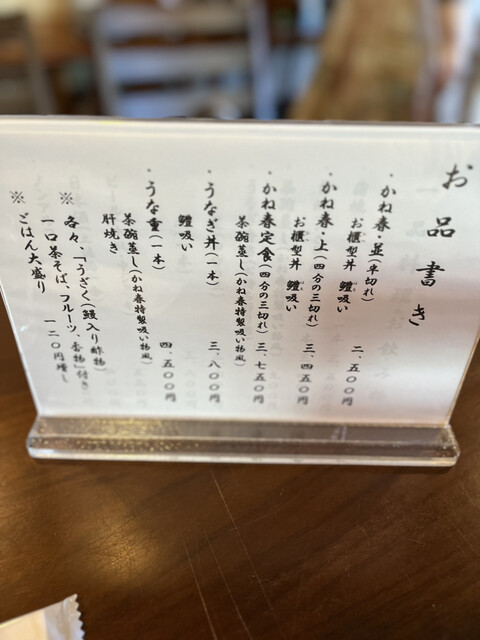 お品書き
・かね春 並(半切れ)
お櫃型丼 鱧吸い 二、五〇〇円
・かね春・上(四分の三切れ)
お櫃型丼 鱧吸い 三、四五〇円
・かね春定食(四分の三切れ)三、七五〇円
茶碗蒸し(かね春特製吸い物風)
・うなぎ丼(一本) 三、八〇〇円
鱧吸い
・うな重(一本) 四、五〇〇円
茶碗蒸し(かね春特製吸い物風)
肝焼き
※ 各々、「うざく(鰻入り酢物)
一口茶そば、フルーツ、香物」付き
※ ごはん大盛り 一二〇円増し